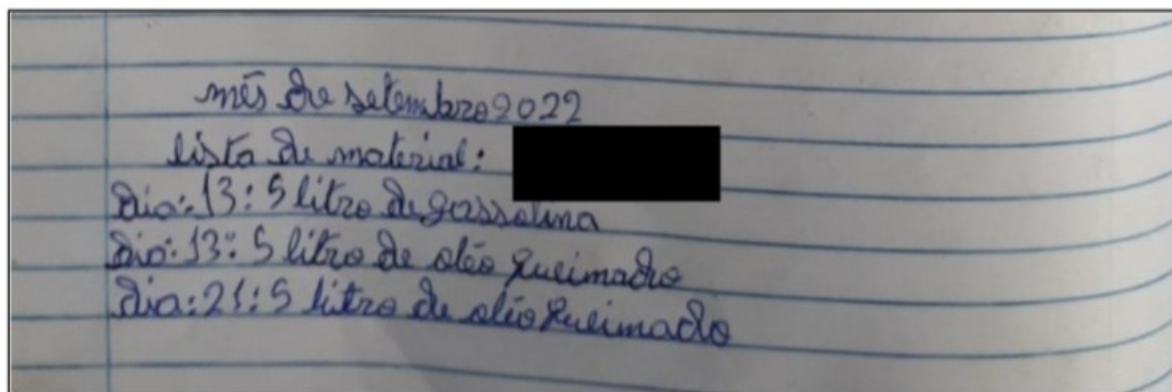 mês de setembro 2022
lista de material:
Dia: 13: 5 litro de gassolina
Dia: 13: 5 litro de oléo queimado
Dia: 21: 5 litro de oléo queimado